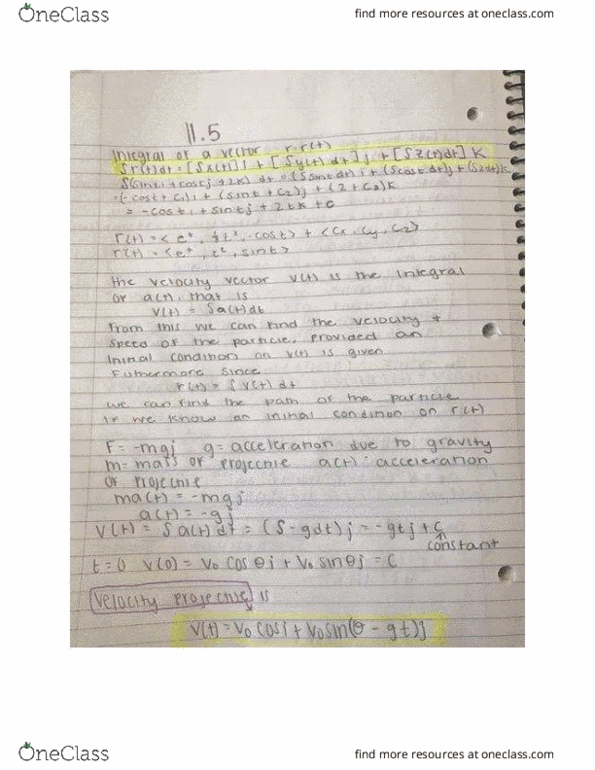 OneClass
find more resources at oneclass.com
11.5
Integral of a vector r·r(t)
∫r(t)dt = [∫x(t)]i + [∫y(t)dt]j + [∫z(t)dt]K
∫(sinti + costj + 2K) dt = (∫sintdt)i + (∫costdt)j + (∫2dt)K
= (-cost + C₁)i + (sint + C₂)j + (2 + C₃)K
= -costi + sintj + 2tK + C
r(t) = <eᵗ, t², -cost> + <Cx, Cy, Cz>
r'(t) = <eᵗ, t², sint>
the velocity vector v(t) is the integral
of a(t), that is
v(t) = ∫a(t)dt
from this we can find the velocity +
speed of the particle, provided an
initial condition on v(t) is given
Futhermore since
r(t) = ∫v(t)dt
we can find the path of the particle
if we know an initial condition on r(t)
F = -mgj g = acceleration due to gravity
m = mass of projectile a(t) = acceleration
of projectile
ma(t) = -mgj
a(t) = -gj
v(t) = ∫a(t)dt = (∫-gdt)j = -gtj + C
constant
t=0 v(0) = v₀ cosθi + v₀ sinθj = C
Velocity projectile is
v(t) = v₀cosi + v₀sin(θ - gt)j
OneClass
find more resources at oneclass.com